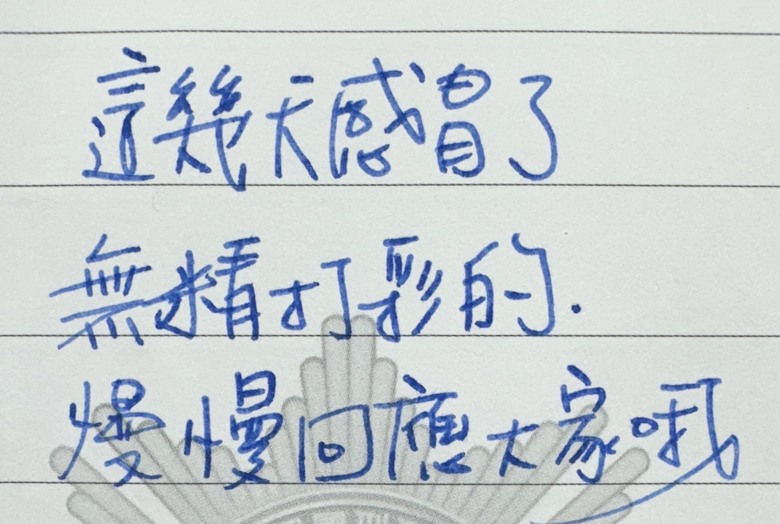 這幾天感冒了
無精打彩的.
慢慢回應大家哦